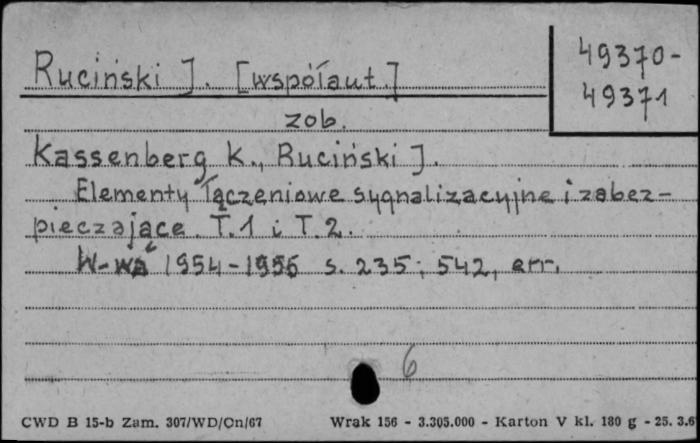 Ruciński J. [współaut.]
49370-
49371
zob.
Kassenberg K., Ruciński J.
Elementy łączeniowe sygnalizacyjne i zabez-
pieczające. T.1 i T.2.
W-wa 1954-1956 s. 235; 542, err.
6
CWD B 15-b Zam. 307/WD/On/67 Wrak 156 - 3.305.000 - Karton V kl. 180 g - 25. 3.6